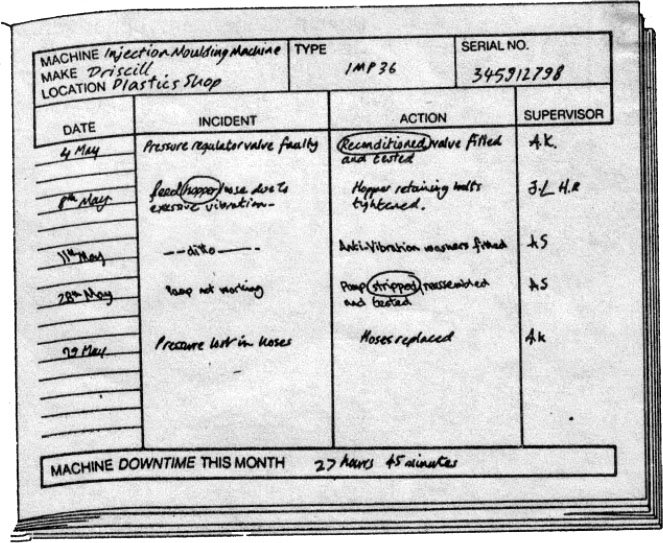 MACHINE Injection Moulding Machine
MAKE Driscill
LOCATION Plastics Shop
TYPE
IMP36
SERIAL NO.
345912798
DATE
INCIDENT
ACTION
SUPERVISOR
4 May
Pressure regulator valve faulty
Reconditioned valve fitted
and tested
A.K.
8th May
feed hopper loose due to
excessive vibration-
Hopper retaining bolts
tightened.
J.L H.R
11th May
---ditto---
Anti-Vibration washers fitted
AS
28th May
Pump not working
Pump stripped, reassembled
and tested
AS
29 May
Pressure lost in hoses
Hoses replaced
A.K
MACHINE DOWNTIME THIS MONTH 27 hours 45 minutes